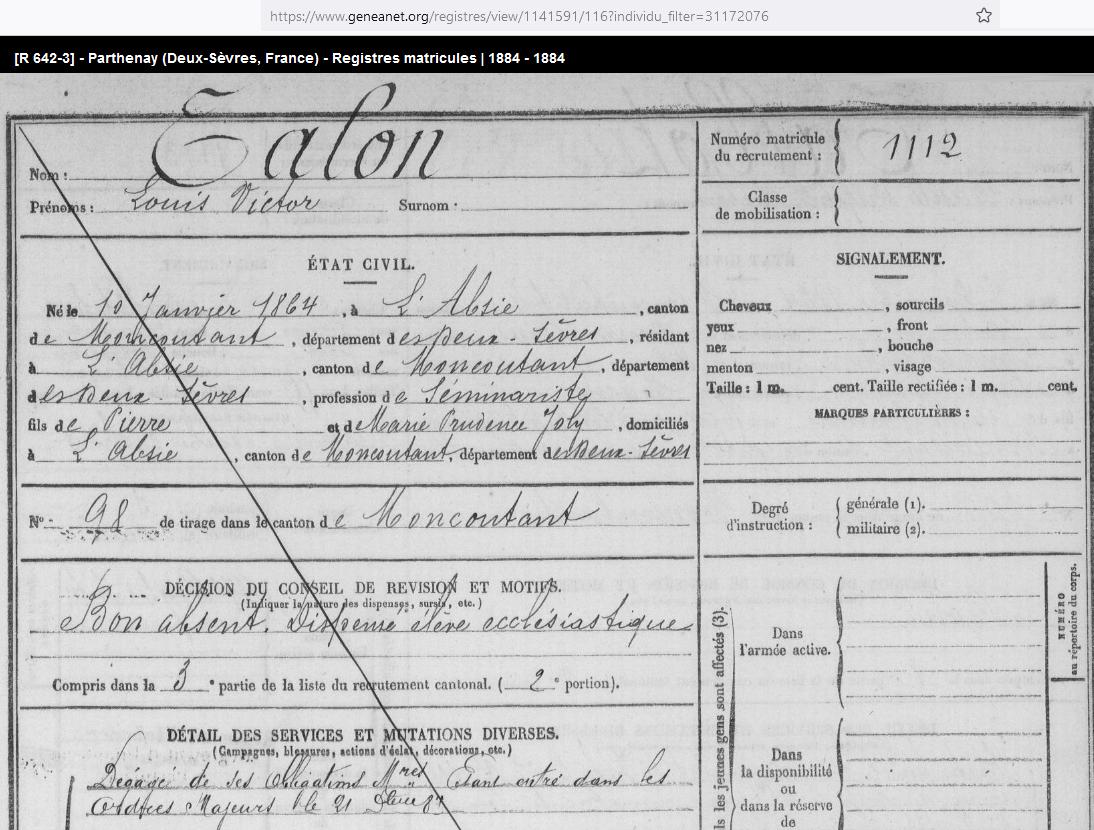 https://www.geneanet.org/registres/view/1141591/116?individu_filter=31172076
[R 642-3] - Parthenay (Deux-Sèvres, France) - Registres matricules | 1884 - 1884
Nom : Talon
Prénoms : Louis Victor Surnom :
Numéro matricule du recrutement : 1112
Classe de mobilisation :
ÉTAT CIVIL.
Né le 10 Janvier 1864, à L'Absie, canton
de Moncoutant, département des Deux-Sèvres, résidant
à L'Absie, canton de Moncoutant, département
des Deux-Sèvres, profession de Séminariste
fils de Pierre et de Marie Prudence Joly, domiciliés
à L'Absie, canton de Moncoutant, département des Deux-Sèvres
N° 98 de tirage dans le canton de Moncoutant
SIGNALEMENT.
Cheveux , sourcils
yeux , front
nez , bouche
menton , visage
Taille : 1 m. cent. Taille rectifiée : 1 m. cent.
MARQUES PARTICULIÈRES :
Degré d'instruction : générale (1).
militaire (2).
DÉCISION DU CONSEIL DE REVISION ET MOTIFS.
(Indiquer la nature des dispenses, sursis, etc.)
Bon absent. Dispensé élève ecclésiastique
Compris dans la 3e partie de la liste du recrutement cantonal. (2e portion).
DÉTAIL DES SERVICES ET MUTATIONS DIVERSES.
(Campagnes, blessures, actions d'éclat, décorations, etc.)
Dégagé de ses Obligations Mres Etant entré dans les
Ordres Majeurs le 21
ls les jeunes gens sont affectés (3).
Dans
l'armée active.
Dans
la disponibilité
ou
dans la réserve
de
NUMÉRO
au répertoire du corps.